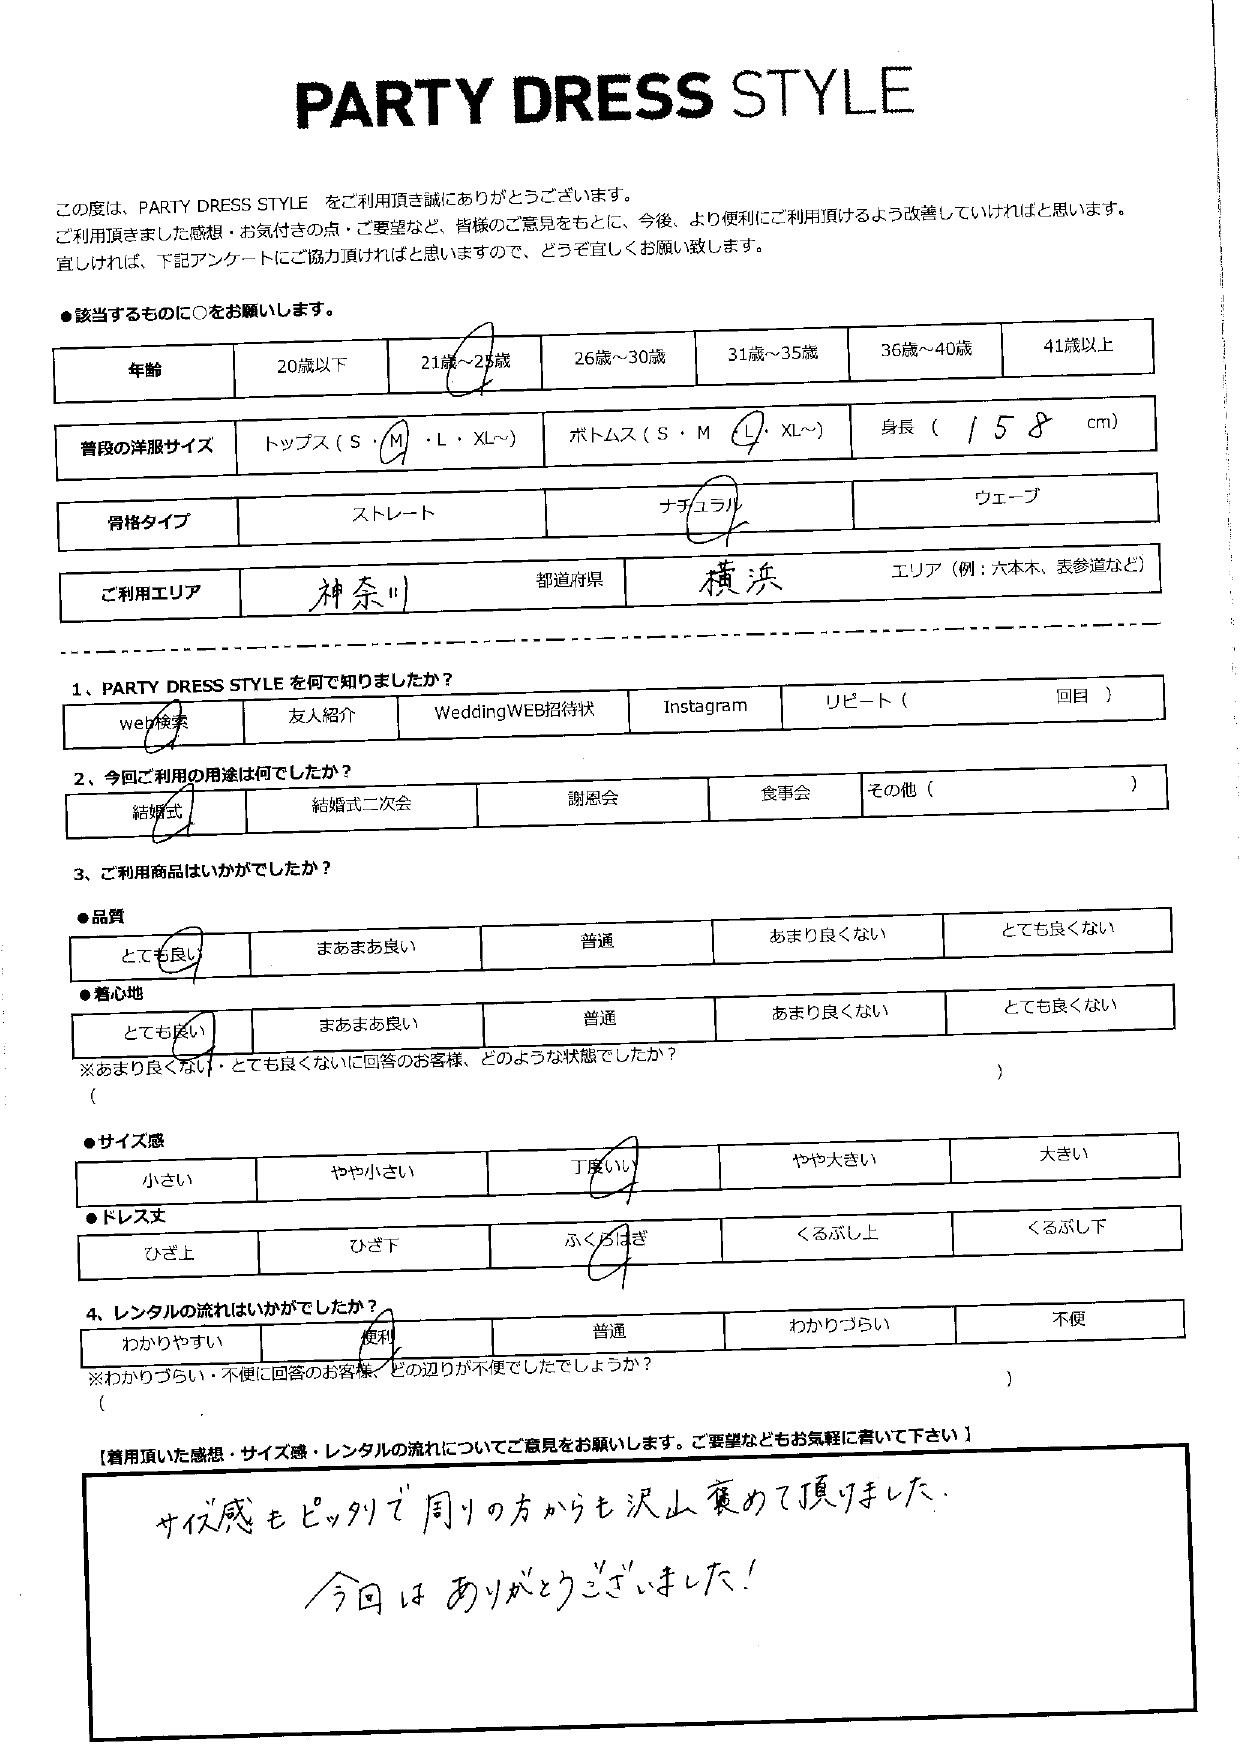 PARTY DRESS STYLE
この度は、PARTY DRESS STYLE をご利用頂き誠にありがとうございます。
ご利用頂きました感想・お気付きの点・ご要望など、皆様のご意見をもとに、今後、より便利にご利用頂けるよう改善していければと思います。
宜しければ、下記アンケートにご協力頂ければと思いますので、どうぞ宜しくお願い致します。
●該当するものに○をお願いします。
年齢 20歳以下 21歳～25歳 26歳～30歳 31歳～35歳 36歳～40歳 41歳以上
普段の洋服サイズ トップス（ S ・ M ・ L ・ XL～） ボトムス（ S ・ M ・ L ・ XL～） 身長（ 158 cm）
骨格タイプ ストレート ナチュラル ウェーブ
ご利用エリア 神奈川 都道府県 横浜 エリア（例：六本木、表参道など）
1、PARTY DRESS STYLE を何で知りましたか？
web検索 友人紹介 WeddingWEB招待状 Instagram リピート（ 回目 ）
2、今回ご利用の用途は何でしたか？
結婚式 結婚式二次会 謝恩会 食事会 その他（ ）
3、ご利用商品はいかがでしたか？
●品質
とても良い まあまあ良い 普通 あまり良くない とても良くない
●着心地
とても良い まあまあ良い 普通 あまり良くない とても良くない
※あまり良くない・とても良くないに回答のお客様、どのような状態でしたか？
（ ）
●サイズ感
小さい やや小さい 丁度いい やや大きい 大きい
●ドレス丈
ひざ上 ひざ下 ふくらはぎ くるぶし上 くるぶし下
4、レンタルの流れはいかがでしたか？
わかりやすい 便利 普通 わかりづらい 不便
※わかりづらい・不便に回答のお客様、どの辺りが不便でしたでしょうか？
（ ）
【着用頂いた感想・サイズ感・レンタルの流れについてご意見をお願いします。ご要望などもお気軽に書いて下さい】
サイズ感もピッタリで周りの方からも沢山褒めて頂けました.
今回はありがとうございました！